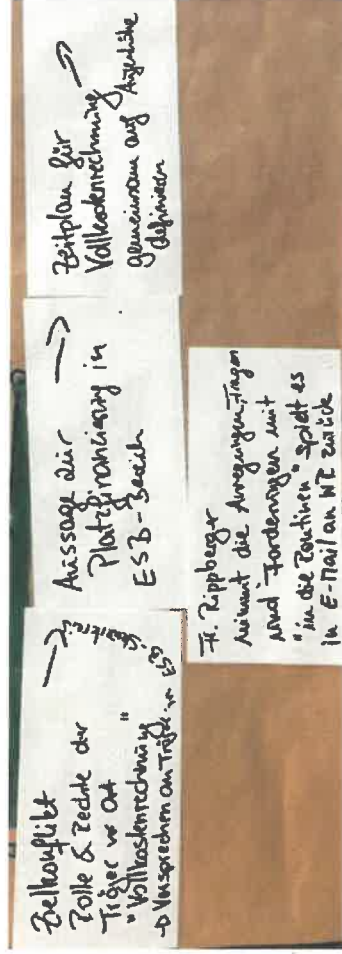 Zielkonflikt →
Rolle & Rechte der
Träger vor Ort
"Vollkostenrechnung"
→ Versprechen an Träger im ESB
Aussage zur →
Platzfinanzierung in
ESB-Bereich
Zeitplan für →
Vollkostenrechnung
gemeinsam auf Augenhöhe
definieren
Fr. Rippberger
nimmt die Anregungen, Fragen
und Forderungen mit
"in die Routinen" spielt es
in E-Mail an NE zurück